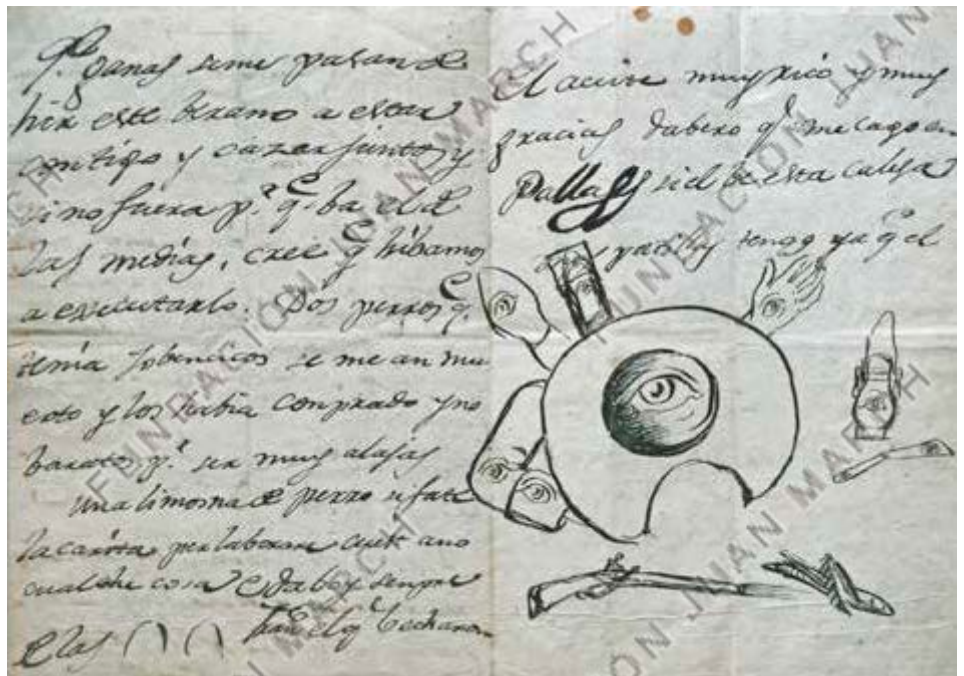 q.e Ganas seme pasan de
hir este berano a estar
contigo y cazar juntos y
si no fuera p.r q.e ba el d
las medias, cree q.e hibamos
a executarlo. Dos perros q.e
tenia jobencicos se me an mu
erto y los habia conprado y no
baratos, p.r ser muy alajas
Una limosna de perro si fate
la carita per laborare cuest ano
cualche cosa e
e las
El aceite muy rico y muy
gracias dabero q.e me cago en
si el be esta calesa
tengo ya q.e el
FUNDACIÓN JUAN MARCH